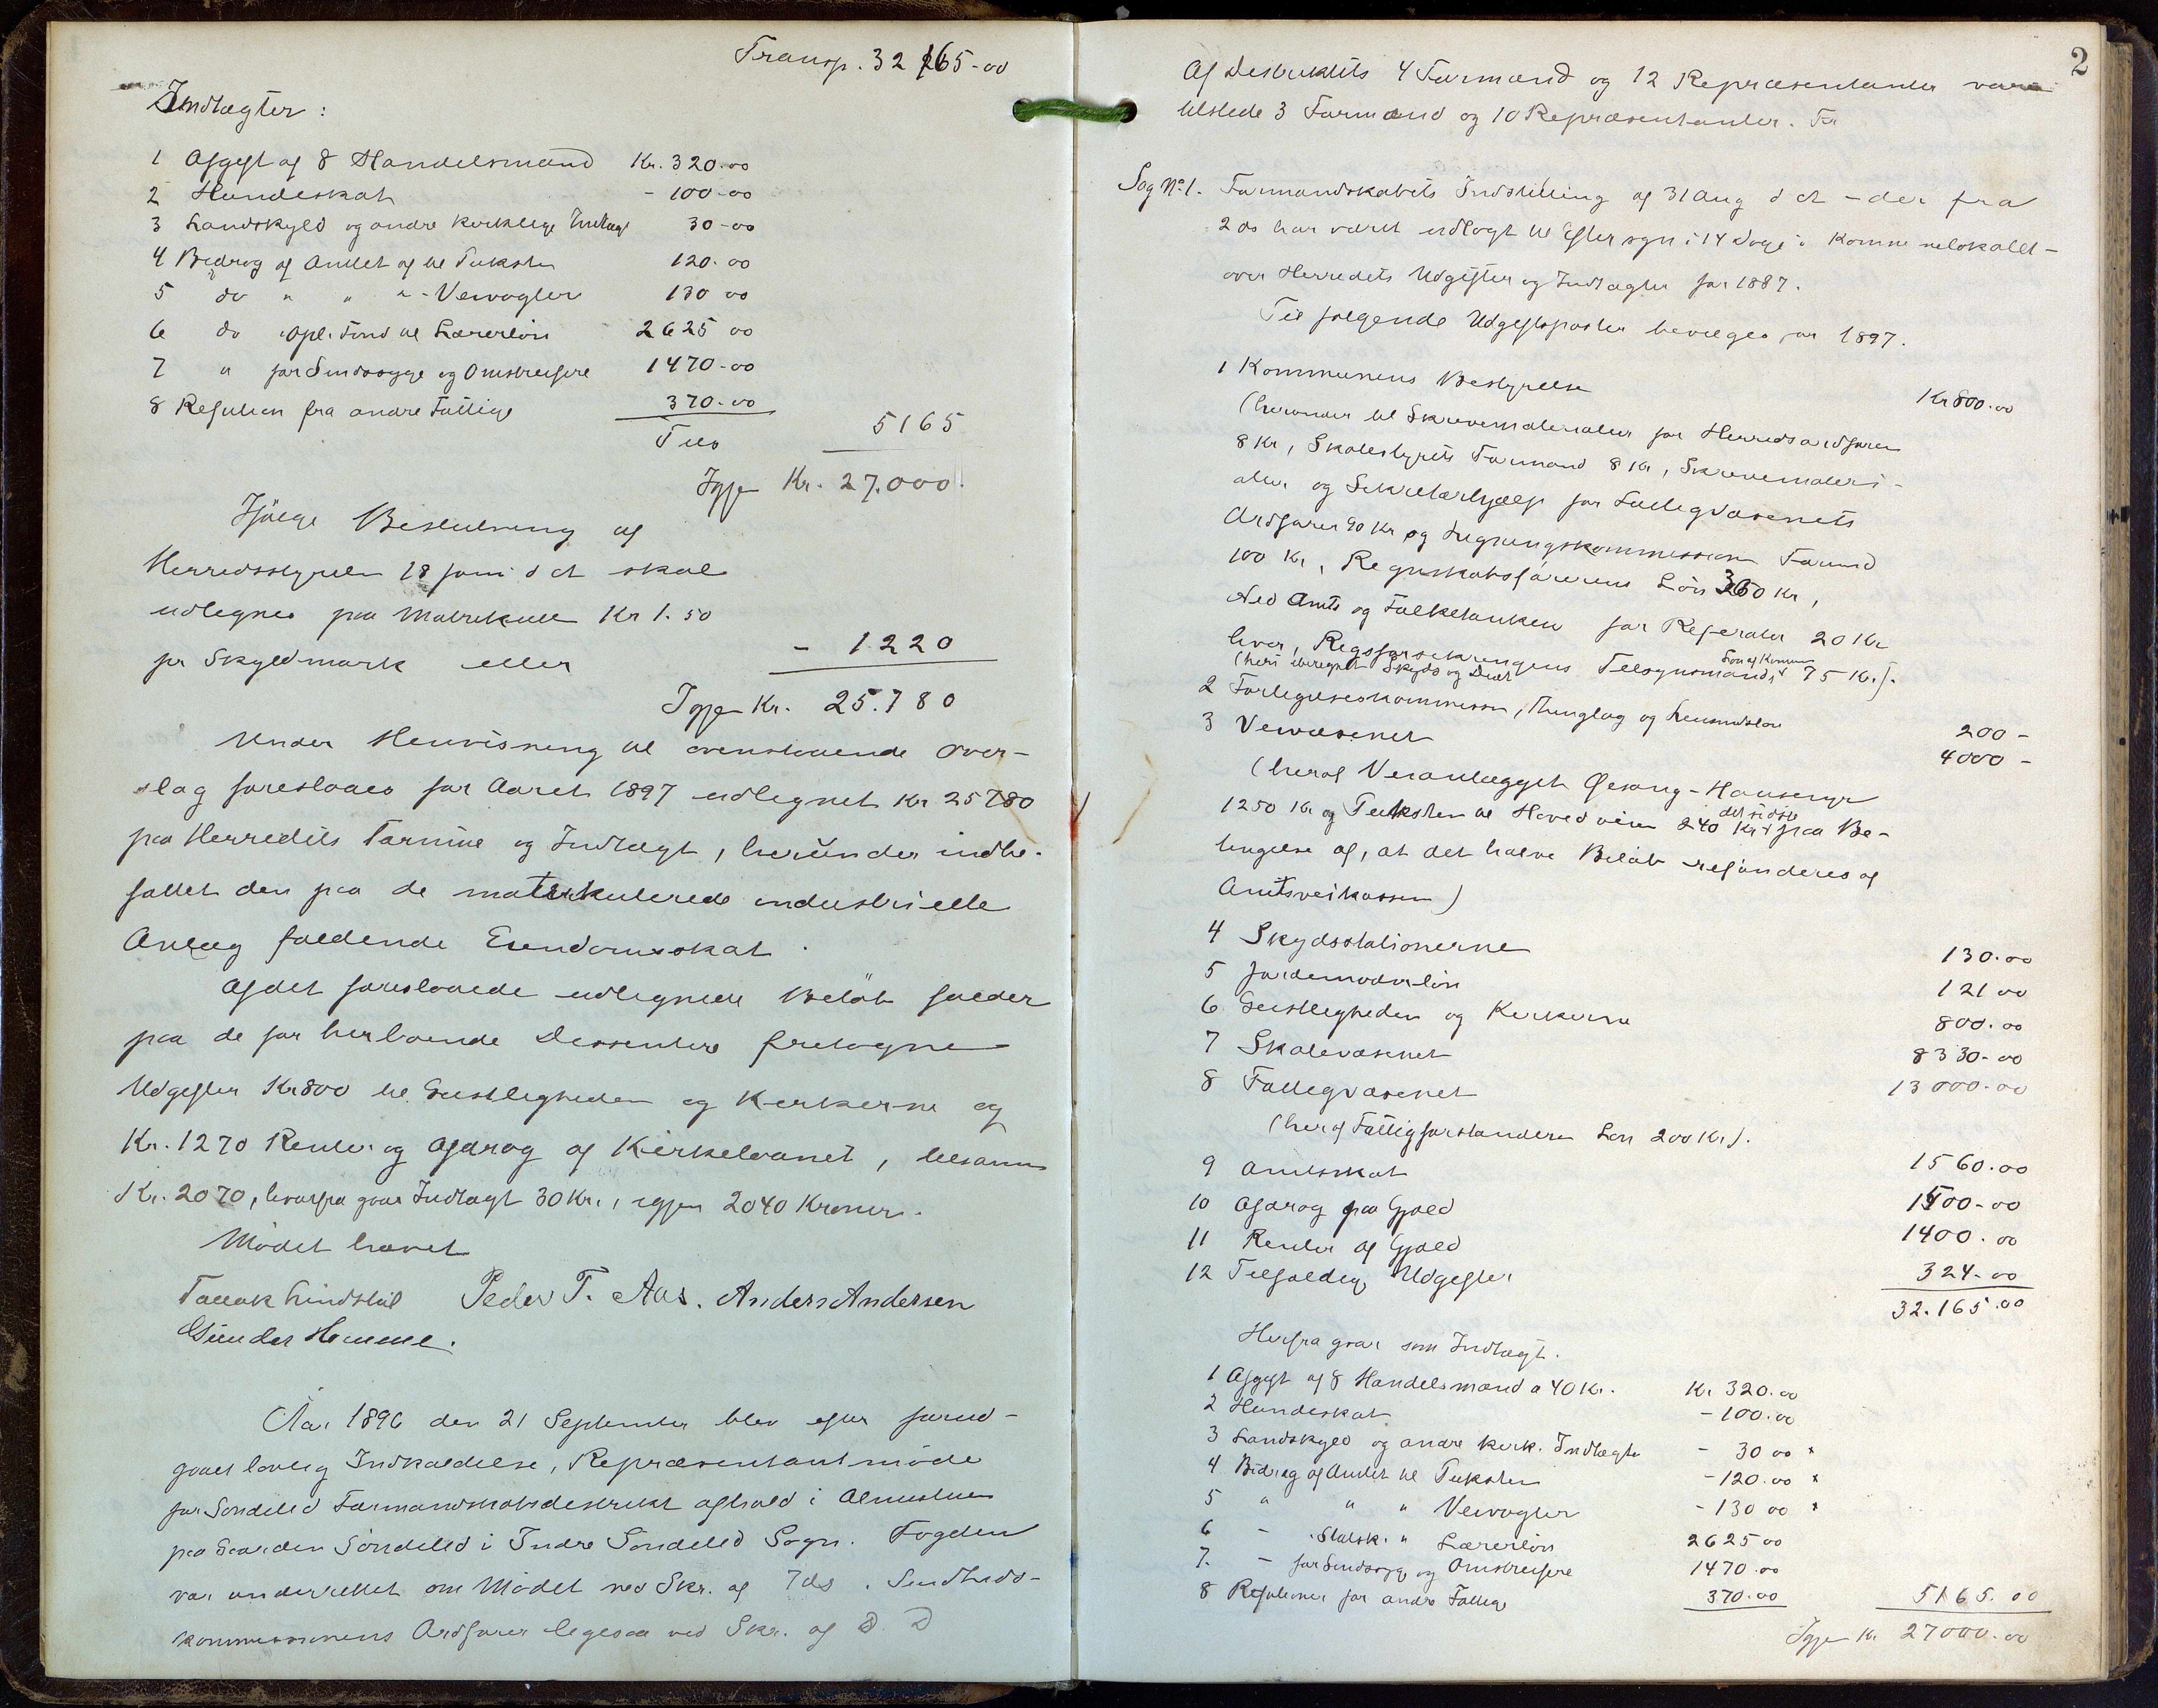 Transp. 32 165-00
Indtægter:
1 Afgift af 8 Handelsmænd Kr. 320.00
2 Hundeskat - 100-00
3 Landskyld og andre kirkelige Indtægt 30-00
4 Bidrag af Amtet af til Puksten 120.00
5 do " " "-Veivogter 130 00
6 do Opl. Fond til Lærerløn 2625 00
7 " for Sindssyge og Omstreifere 1470-00
8 Refusion fra andre Fattige 370-00
Tils 5165
Igjen Kr. 27.000.
Ifølge Beslutning af
Herredsstyrelsen 18 juni d A skal
udlignes paa Matrikulen Kr 1.50
pr Skyldmark eller - 1220
Igjen Kr. 25.780
Under Henvisning til ovenstaaende Over-
slag foreslaaes for Aaret 1897 udlignet Kr 25780
paa Herredets Formue og Indtægt, herunder indbe-
fattet den paa de matrikulerede industrielle
Anlæg faldende Eiendomsskat.
Af det foreslaaede udlignede Beløb falder
paa de for herboende Dissentere fretagne
Udgifter Kr 800 til Geistligheden og Kirkerne og
Kr. 1270 Renter og Afdrag af Kirkelaanet, tilsamm
Kr. 2070, hvorfra gaar Indtægt 30 Kr., igjen 2040 Kroner.
Mødet hævet
Tallak Lindstøl Peder T. Aas. Anders Andersen
Gunder Hemme.
Aar 1896 den 21 September blev efter forud-
gaaet lovlig Indkaldelse, Repræsentantmøde
for Søndeled Formandskabsdistrikt afholdt i Almuestuen
paa Gaarden Søndeled i Indre Søndeled Sogn. Fogden
var underrettet om Mødet ved Skr. af 7ds. Sundheds-
kommissionens Ordfører ligesaa ved Skr. af S. D
2
Af Distriktets 4 Formænd og 12 Repræsentanter vare
tilstede 3 Formænd og 10 Repræsentanter. For
Sag No 1. Formandskabets Indstilling af 31 Aug d A - der fra
2 ds har været udlagt til Eftersyn i 14 Dage i Kommunelokalet -
over Herredets Udgifter og Indtægter for 1887.
Til følgende Udgiftsposter bevilges for 1897.
1 Kommunens Bestyrelse Kr 800.00
(herunder til Skrivematerialier for Herredsordføren
8 Kr, Skolestyrets Formand 8 Kr, Skrivemateri-
alier og Sekretærhjælp for Fattigvæsenets
Ordfører 90 Kr og Ligningskommissionens Formd
100 Kr, Regnskabsførerens Løn 360 Kr,
Ned Amts og Folketanken for Referater 20 Kr
hver, Regsforsikringens Tilsynsmands Løn af Komm 75 Kr.).
(heri iberegnet Skyds og Diæt
2 Forligelseskommissn, Thinglag og Lensmdsløn 200 -
3 Veivæsenet 4000 -
(heraf Veianlægget Øesang - Hauseny
1250 Kr og Puksten til Hovedveien 240 Kr det sidste paa Be-
tingelse af, at det halve Beløb refunderes af
Amtsveikassen)
4 Skydsstationerne 130.00
5 Jordemoderløn 121 00
6 Geistligheden og Kirkerne 800.00
7 Skolevæsenet 8330-00
8 Fattigvæsenet 13000.00
(heraf Fattigforstanderen Løn 200 Kr).
9 Amtsskat 1560.00
10 Afdrag paa Gjæld 1500-00
11 Renter af Gjæld 1400.00
12 Tilfældige Udgifter 324-00
32.165.00
Herfra gaar som Indtægt.
1 Afgift af 8 Handelsmænd a 40 Kr. Kr. 320.00
2 Hundeskat - 100.00
3 Landskyld og andre kirk. Indtægter - 30 00 x
4 Bidrag af Amtet til Puksten - 120.00 x
5 " " " Veivogter - 130 00 x
6 - Statsk. " Lærerløn 2625 00
7. - for Sindssyge og Omstreifere 1470.00
8 Refusioner for andre Fattige 370.00 5165.00
Igjen Kr. 27000.00